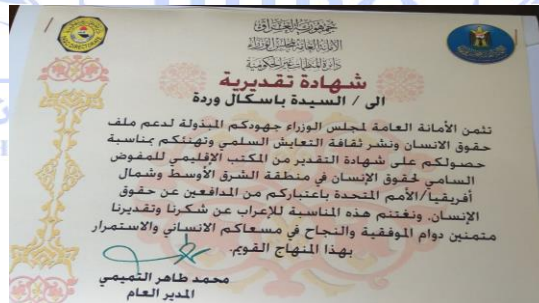 جمهورية العراق
الامانة العامة لمجلس الوزراء
دائرة المنظمات غير الحكومية
شهادة تقديرية
الى / السيدة باسكال وردة
تثمن الأمانة العامة لمجلس الوزراء جهودكم المبذولة لدعم ملف
حقوق الانسان ونشر ثقافة التعايش السلمي وتهنئتكم بمناسبة
حصولكم على شهادة التقدير من المكتب الإقليمي للمفوض
السامي لحقوق الإنسان في منطقة الشرق الأوسط وشمال
أفريقيا/الأمم المتحدة باعتباركم من المدافعين عن حقوق
الإنسان. ونغتنم هذه المناسبة للإعراب عن شكرنا وتقديرنا
متمنين دوام الموفقية والنجاح في مسعاكم الانساني والاستمرار
بهذا المنهاج القويم.
محمد طاهر التميمي
المدير العام